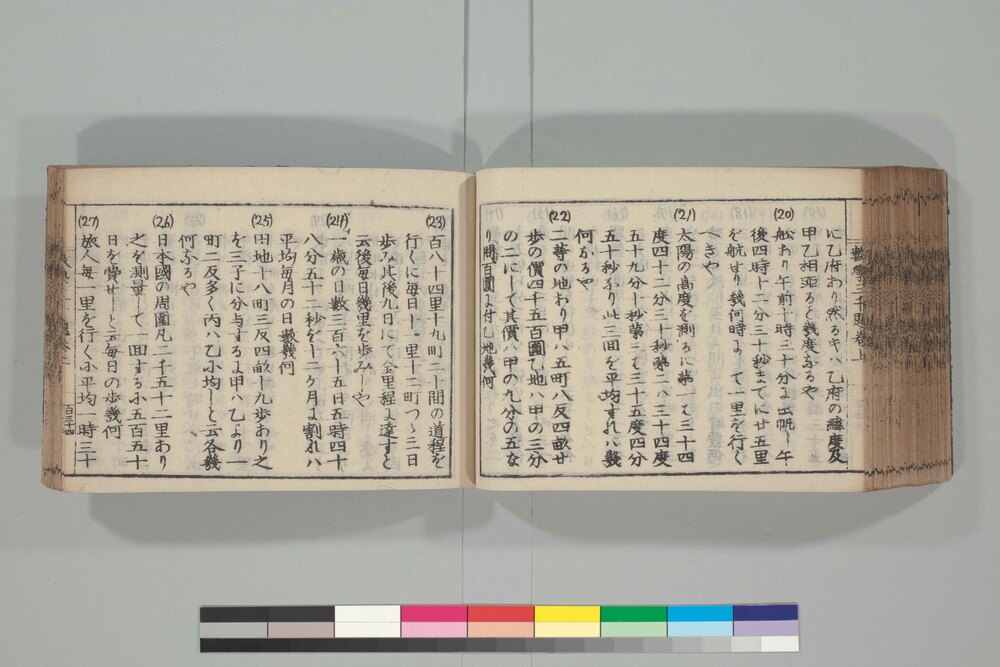 に乙府あり然るキハ乙府の緯度及
甲乙相距ると幾度なるや
(20)
舩あり午前十時三十分よ出帆し午
後四時十二分三十秒までに廿五里
を航せり幾何時よて一里を行く
べきや
(21)
太陽の高度を測るに第一ハ三十四
度四十二分三十秒第二ハ三十四度
五十九分十秒第三ハ三十五度四分
五十秒なり此三回を平均すれハ幾
何なるや
(22)
二等の地あり甲ハ五町八反四畝廿
歩の價四千五百圓乙地ハ甲の三分
の二にして其價ハ甲の九分の五な
り問百圓よ付乙地幾何
(23)
百八十四里十九町二十間の道程を
行くに毎日十一里十二町つゝ三日
歩み其後九日にて全里程よ達すと
云後毎日幾里を歩みしや
(24)
一歳の日数三百六十五日五時四十
八分五十二秒を十二ケ月よ割れハ
平均毎月の日數幾何
(25)
田地十八町三反四畝十九歩あり之
を三子に分与するよ甲ハ乙より一
町二反多く丙ハ乙小均しと云各幾
何なるや
(26)
日本國の周圍凡二千五十二里あり
之を測量して一周する小五百五十
日を費せしと云毎日の歩幾何
(27)
旅人毎一里を行く小平均一時三十
數學三千題卷上
百三十四